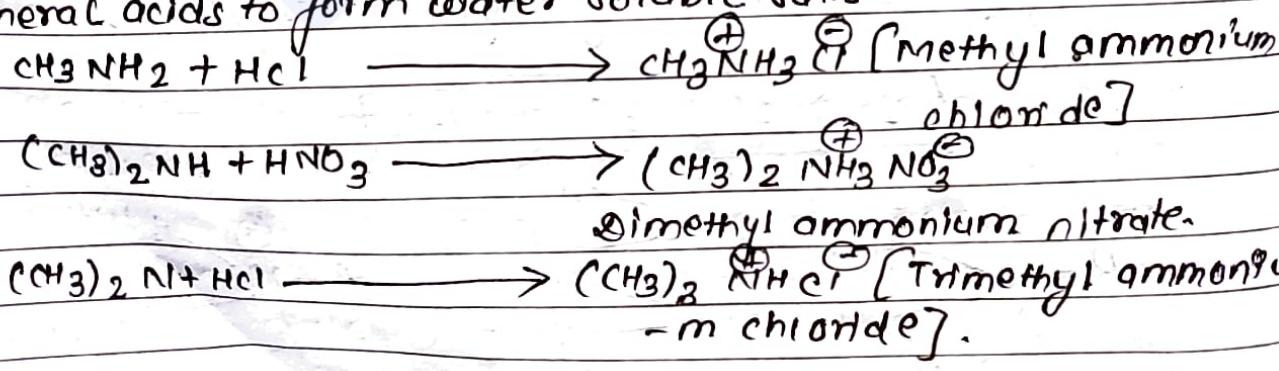 neral acids to form water soluble
CH3 NH2 + HCl ⟶ CH3 N⊕H3 Cl⊖ [Methyl ammonium
- chloride]
(CH3)2 NH + HNO3 ⟶ (CH3)2 N⊕H3 NO3⊖
Dimethyl ammonium nitrate.
(CH3)2 N + HCl ⟶ (CH3)3 N⊕H Cl⊖ [Trimethyl ammoniu
-m chloride].